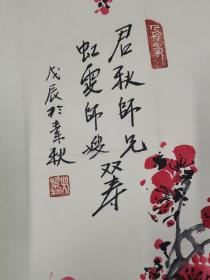 君秋師兄
虹雯師嫂双寿
戊辰於素秋